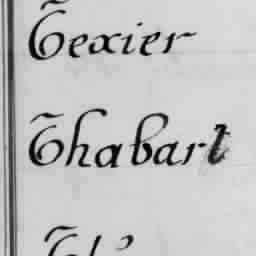 Texier
Thabart